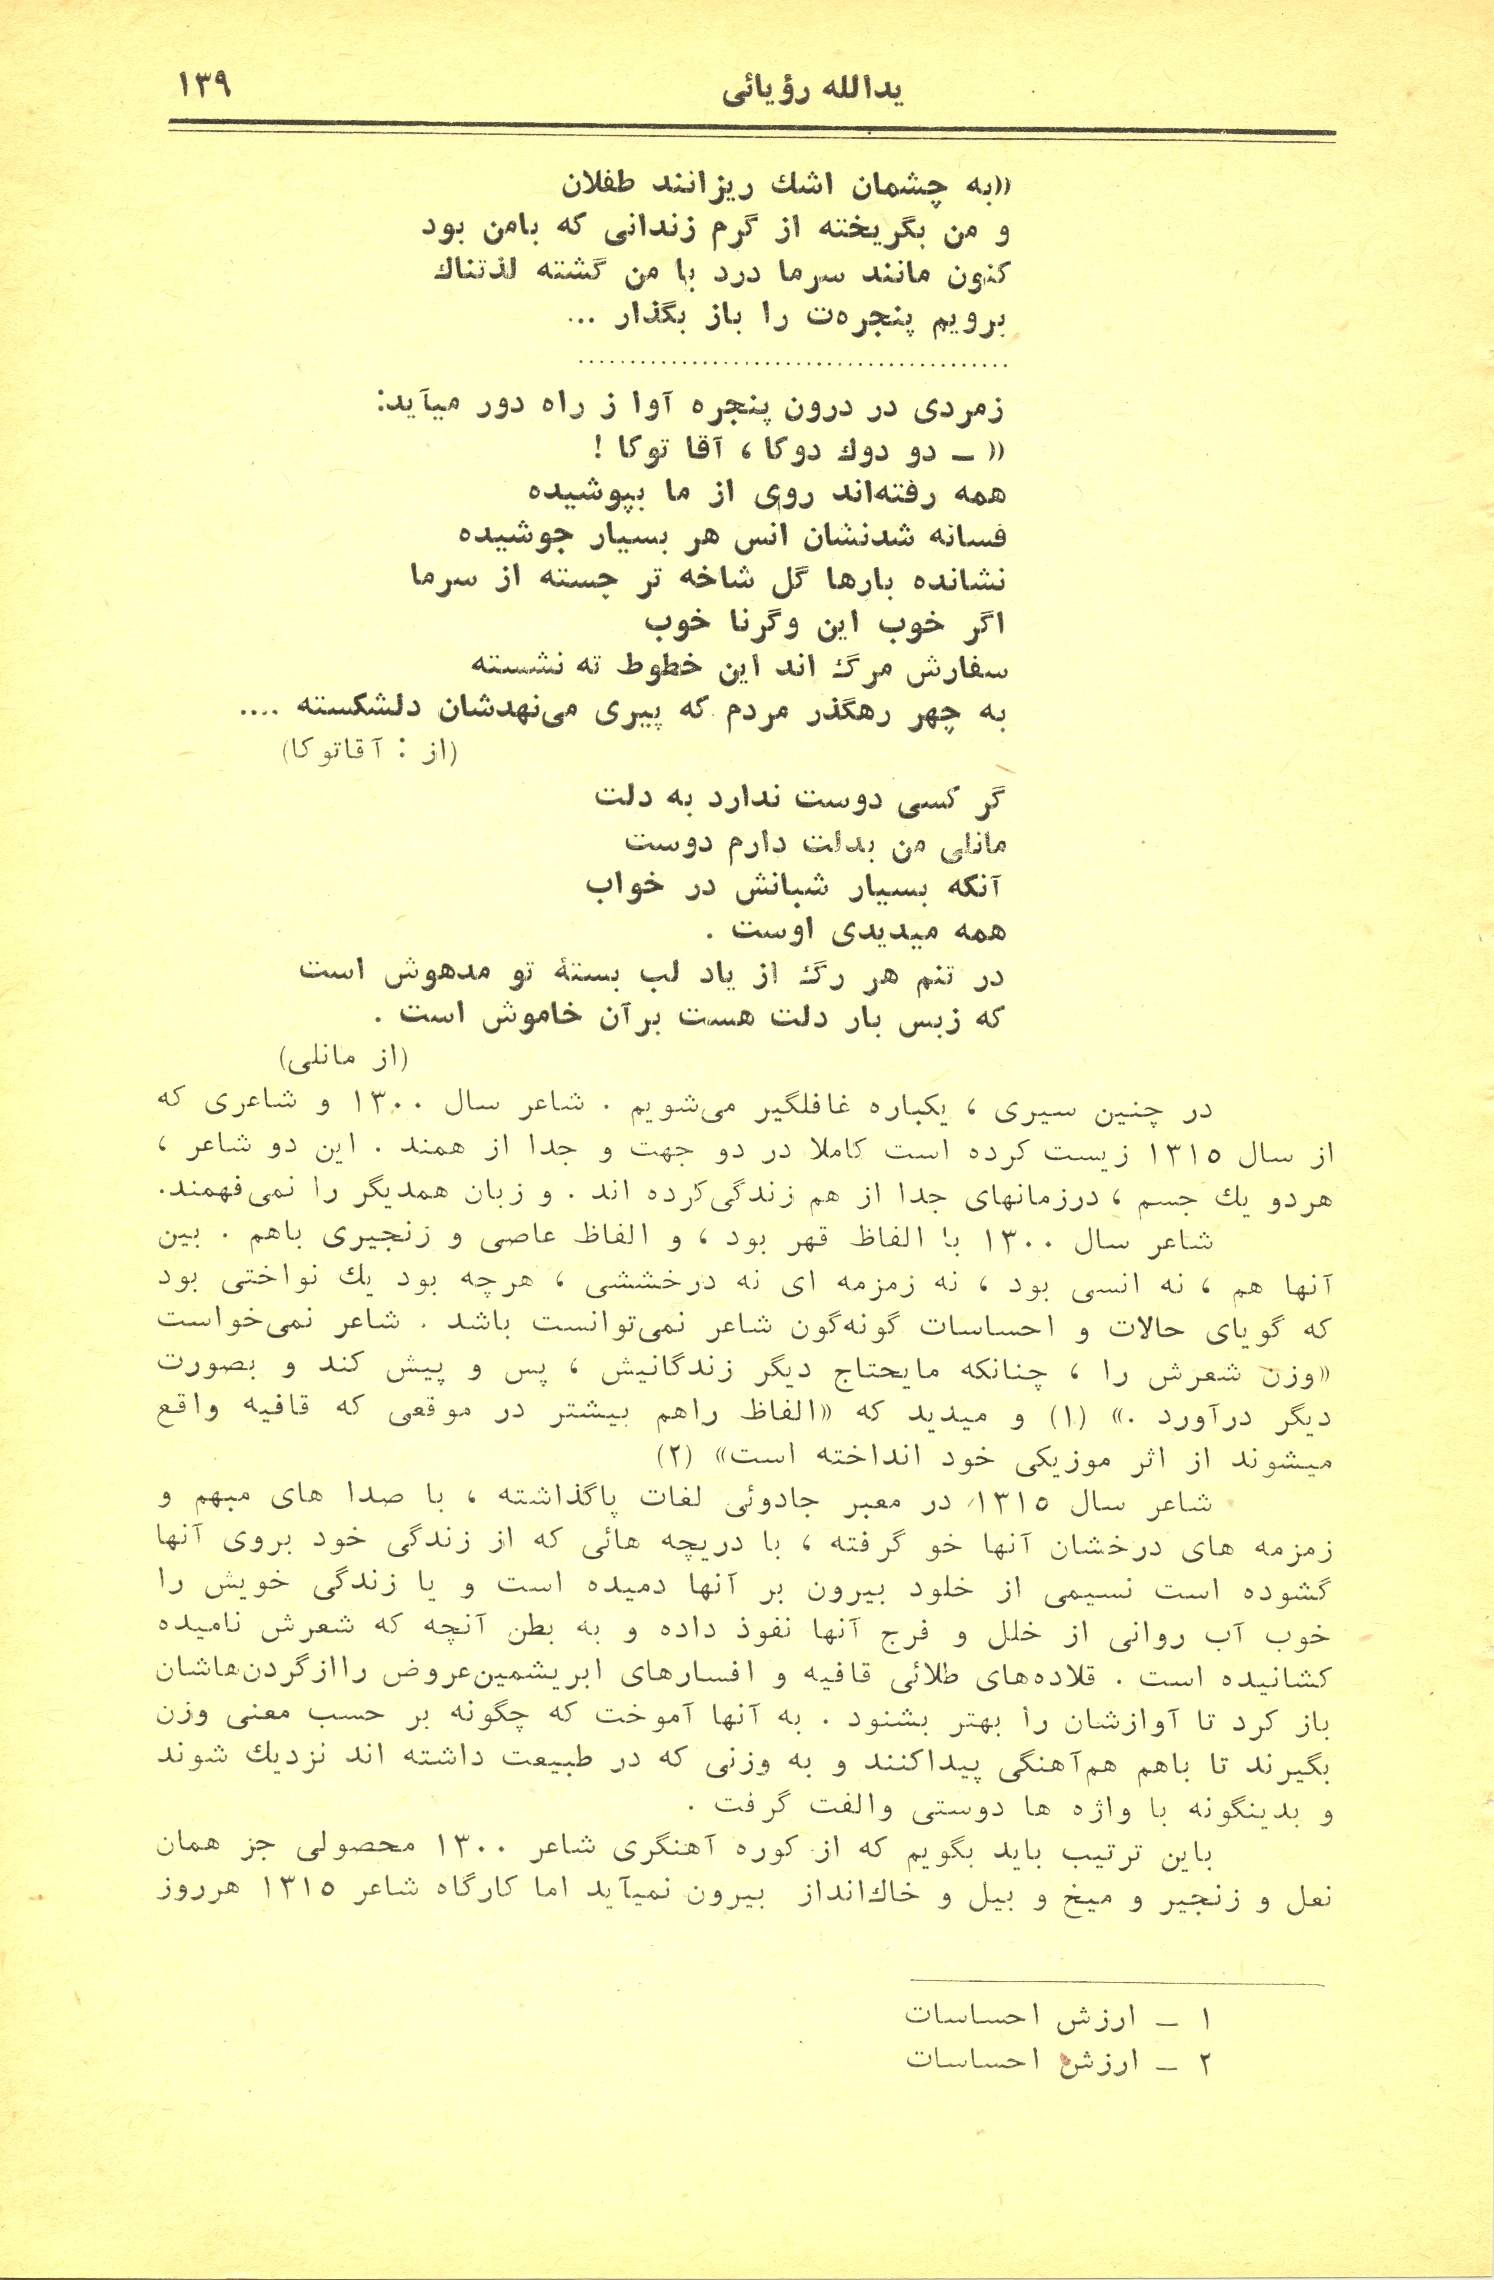 یدالله رؤیائی
۱۳۹
«به چشمان اشك ریزانند طفلان
و من بگریخته از گرم زندانی که بامن بود
کنون مانند سرما درد با من گشته لذتناك
برویم پنجره‌ت را باز بگذار ...
........................................
زمردی در درون پنجره آوا ز راه دور میآید:
« ـ دو دوك دوکا ، آقا توکا !
همه رفته‌اند روی از ما بپوشیده
فسانه شدنشان انس هر بسیار جوشیده
نشانده بارها گل شاخه تر جسته از سرما
اگر خوب این وگرنا خوب
سفارش مرگ اند این خطوط ته نشسته
به چهر رهگذر مردم که پیری می‌نهدشان دلشکسته ....
(از : آقاتوکا)
گر کسی دوست ندارد به دلت
مانلی من بدلت دارم دوست
آنکه بسیار شبانش در خواب
همه میدیدی اوست .
در تنم هر رگ از یاد لب بستهٔ تو مدهوش است
که زبس بار دلت هست برآن خاموش است .
(از مانلی)
در چنین سیری ، یکباره غافلگیر می‌شویم . شاعر سال ۱۳۰۰ و شاعری که
از سال ۱۳۱۵ زیست کرده است کاملا در دو جهت و جدا از همند . این دو شاعر ،
هردو یك جسم ، درزمانهای جدا از هم زندگی‌کرده اند . و زبان همدیگر را نمی‌فهمند.
شاعر سال ۱۳۰۰ با الفاظ قهر بود ، و الفاظ عاصی و زنجیری باهم . بین
آنها هم ، نه انسی بود ، نه زمزمه ای نه درخششی ، هرچه بود یك نواختی بود
که گویای حالات و احساسات گونه‌گون شاعر نمی‌توانست باشد . شاعر نمی‌خواست
«وزن شعرش را ، چنانکه مایحتاج دیگر زندگانیش ، پس و پیش کند و بصورت
دیگر درآورد .» (۱) و میدید که «الفاظ راهم بیشتر در موقعی که قافیه واقع
میشوند از اثر موزیکی خود انداخته است» (۲)
شاعر سال ۱۳۱۵ در معبر جادوئی لغات پاگذاشته ، با صدا های مبهم و
زمزمه های درخشان آنها خو گرفته ، با دریچه هائی که از زندگی خود بروی آنها
گشوده است نسیمی از خلود بیرون بر آنها دمیده است و یا زندگی خویش را
خوب آب روانی از خلل و فرج آنها نفوذ داده و به بطن آنچه که شعرش نامیده
کشانیده است . قلاده‌های طلائی قافیه و افسارهای ابریشمین‌عروض راازگردن‌هاشان
باز کرد تا آوازشان را بهتر بشنود . به آنها آموخت که چگونه بر حسب معنی وزن
بگیرند تا باهم هم‌آهنگی پیداکنند و به وزنی که در طبیعت داشته اند نزدیك شوند
و بدینگونه با واژه ها دوستی والفت گرفت .
باین ترتیب باید بگویم که از کوره آهنگری شاعر ۱۳۰۰ محصولی جز همان
نعل و زنجیر و میخ و بیل و خاك‌انداز بیرون نمیآید اما کارگاه شاعر ۱۳۱۵ هرروز
۱ ـ ارزش احساسات
۲ ـ ارزش احساسات